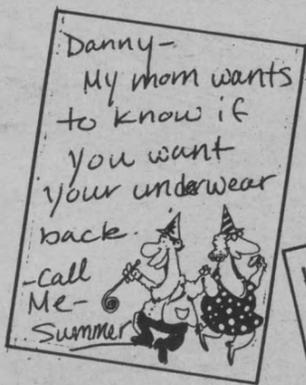 Danny-
My mom wants
to know if
you want
your underwear
back.
-call
Me-
Summer